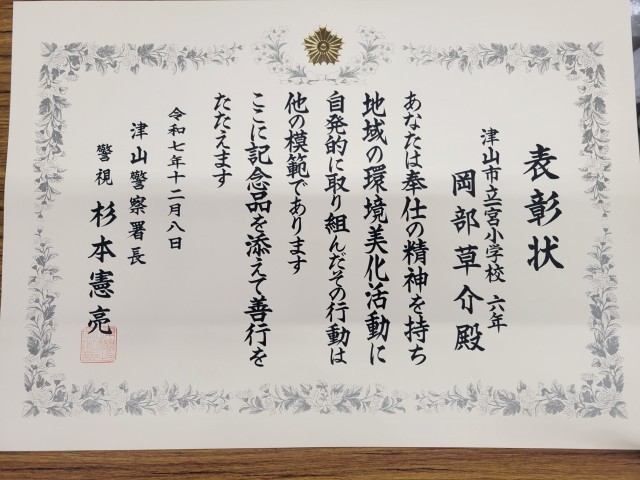 表彰状
津山市立一宮小学校 六年
岡部草介殿
あなたは奉仕の精神を持ち
地域の環境美化活動に
自発的に取り組んだその行動は
他の模範であります
ここに記念品を添えて善行を
たたえます
令和七年十二月八日
津山警察署長
警視 杉本憲亮